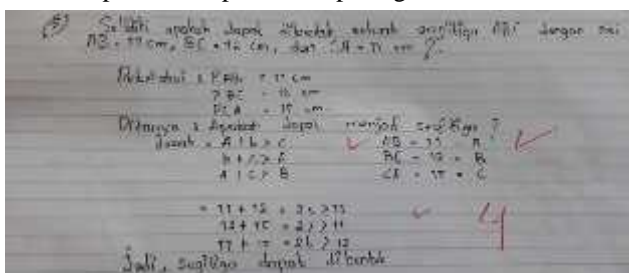 Selidiki apakah dapat dibentuk sebuah segitiga ABC dengan sisi
AB = 11 cm, BC = 12 cm, dan CA = 15 cm ?
Diketahui : P AB = 11 cm
P BC = 12 cm
P CA = 15 cm
Ditanya : Apakah dapat menjadi segitiga ?
Jawab = A + b > C AB = 11 = A
b + c > A BC = 12 = B
A + C > B CA = 15 = C
= 11 + 12 = 23 > 15
12 + 15 = 27 > 11
11 + 15 = 26 > 12
4
Jadi, segitiga dapat dibentuk